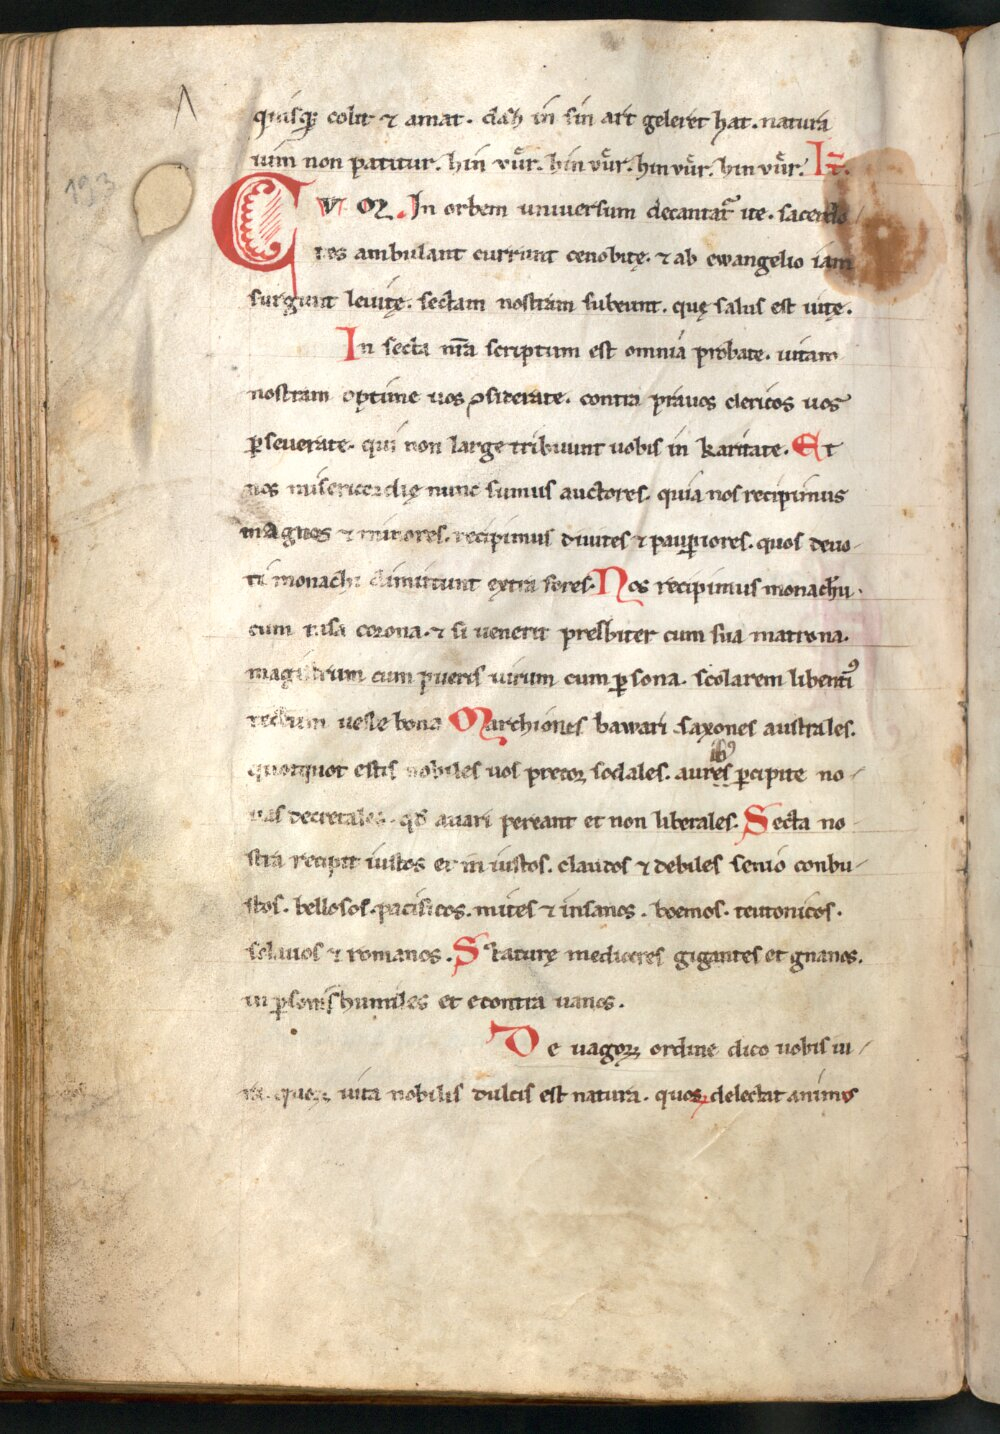 193
quisq; colit ⁊ amat. daz in sin art geleret hat. natura
uim non patitur. hin vuͤr. hin vuͤr. hin vuͤr. hin vuͤr. It̄.
CVM In orbem uniuersum decantat᷑ ite. sacerdo-
tes ambulant currunt cenobitę. ⁊ ab ewangelio iam
surgunt leuitę. sectam nostram subeunt. quę salus est uitę.
In secta nr̄a scriptum est omnia probate. uitam
nostram optime uos ꝯsiderate. contra prauos clericos uos
ꝑseuerate. qui non large tribuunt uobis in karitate. Et
nos misericordię nunc sumus auctores. quia nos recipimus
magnos ⁊ minores. recipimus diuites ⁊ pauꝑiores. quos deuo-
ti monachi dimittunt extra fores. Nos recipimus monachū.
cum rasa corona. ⁊ si uenerit presbiter cum sua matrona.
magistrum cum pueris uirum cum ꝑsona. scolarem libentiꝰ
tectum ueste bona Marchiones bawari saxones australes.
quotquot estis nobiles uos precor sodales. aurib; ꝑcipite no-
uas decretales. qd̄ auari pereant et non liberales. Secta no-
stra recipit iustos et iniustos. claudos ⁊ debiles senio conbu-
stos. bellosos. pacificos. mites ⁊ insanos. boemos. teutonicos.
sclauos ⁊ romanos. Staturę mediocres gigantes et gnanos.
in ꝑsonis humiles et econtra uanos.
De uagoꝝ ordine dico uobis iu-
ra. quoꝝ uita nobilis dulcis est natura. quos delectat animus